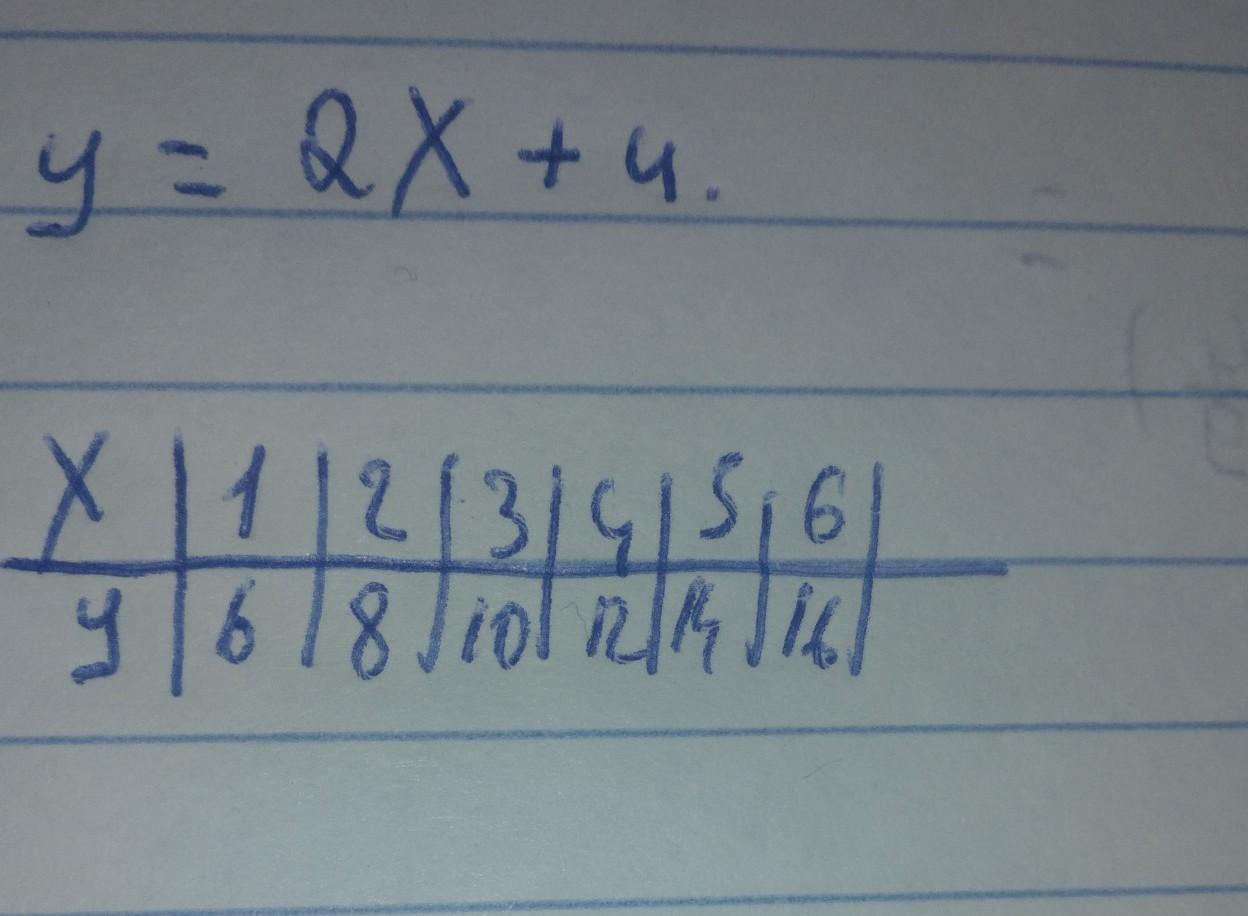 y = 2x + 4.
x | 1 | 2 | 3 | 4 | 5 | 6 |
y | 6 | 8 | 10 | 12 | 14 | 16 |